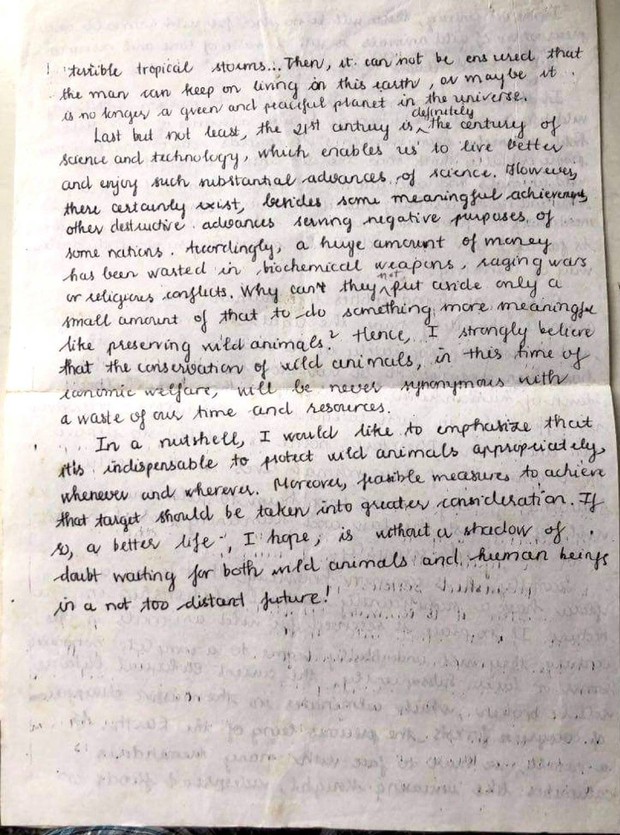 terrible tropical storms... Then, it can not be ensured that
the man can keep on living on this earth, or maybe it
is no longer a green and peaceful planet in the universe.
Last but not least, the 21st century is definitely the century of
science and technology, which enables us to live better
and enjoy such substantial advances of science. However,
there certainly exist, besides some meaningful achievements,
other destructive advances serving negative purposes of
some nations. Accordingly, a huge amount of money
has been wasted in biochemical weapons, raging wars
or religious conflicts. Why can't they not put aside only a
small amount of that to do something more meaningful
like preserving wild animals? Hence, I strongly believe
that the conservation of wild animals, in this time of
economic welfare, will be never synonymous with
a waste of our time and resources.
In a nutshell, I would like to emphasize that
it's indispensable to protect wild animals appropriately,
whenever and wherever. Moreover, feasible measures to achieve
that target should be taken into greater consideration. If
so, a better life, I hope, is without a shadow of
doubt waiting for both wild animals and human beings
in a not too distant future!